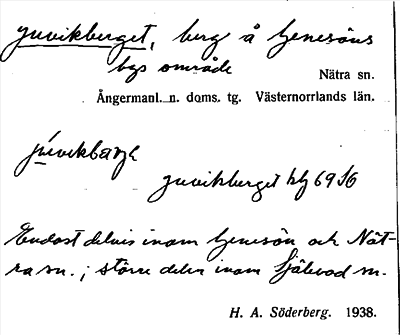 Juvikberget, berg å Genesöns
bys område
Nätra sn.
Ångermanl. n. doms. tg. Västernorrlands län.
Juvikberget blj 69 S6
Endast delvis inom Genesön och Nät-
ra sn.; större delen inom Själevad sn.
H. A. Söderberg. 1938.